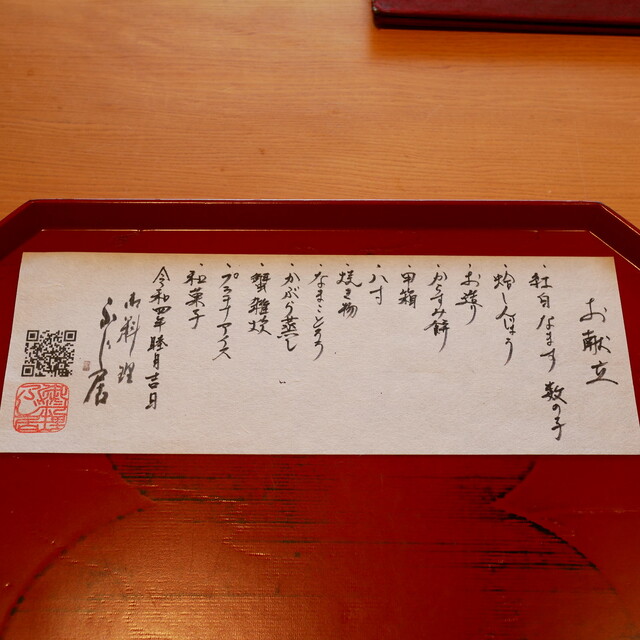 お献立
・紅白なます 数の子
・蛤しんじょう
・お造り
・からすみ餅
・甲箱
・八寸
・焼き物
・なまことろろ
・かぶら蒸し
・蟹雑炊
・プラチナアイス
・和菓子
令和四年睦月吉日
御料理
ふじ居